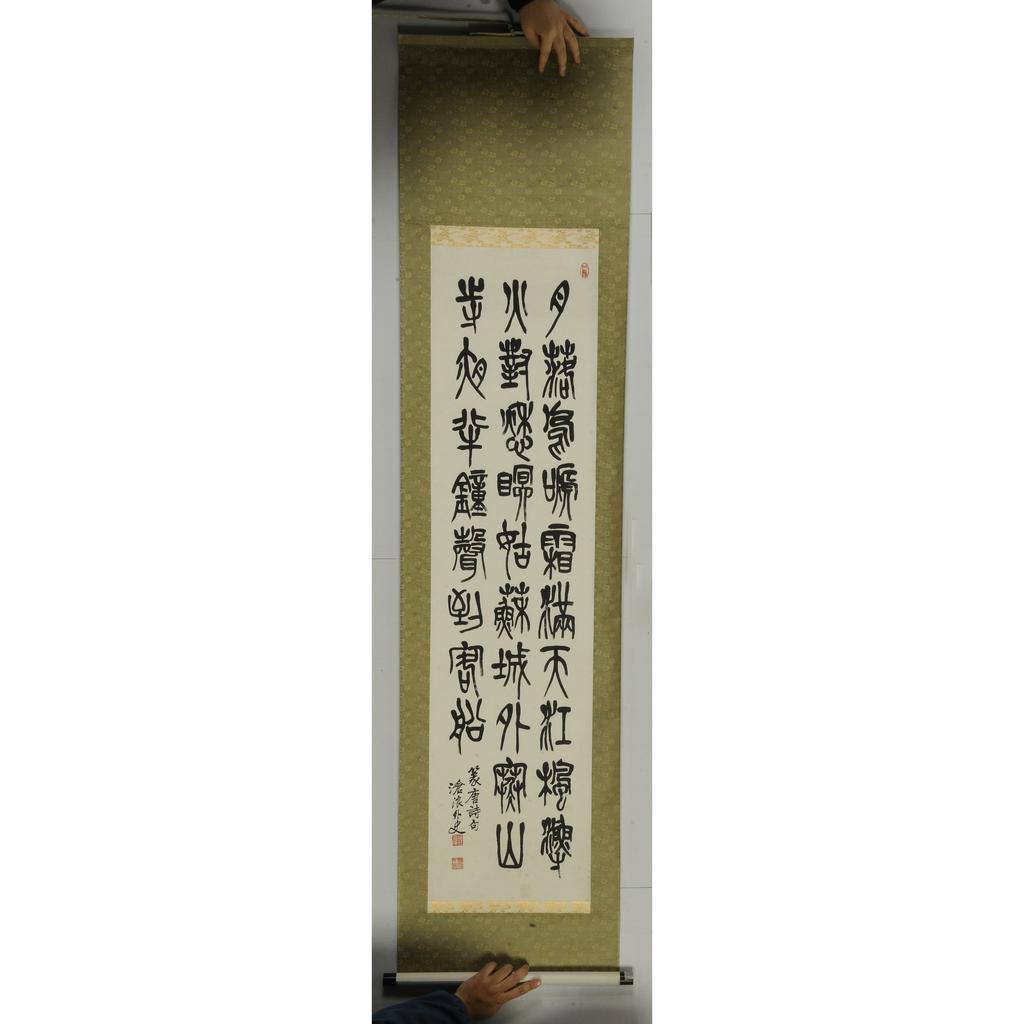 月落烏啼霜滿天江楓漁
火對愁眠姑蘇城外寒山
寺夜半鐘聲到客船
篆唐詩句
滄浪外史